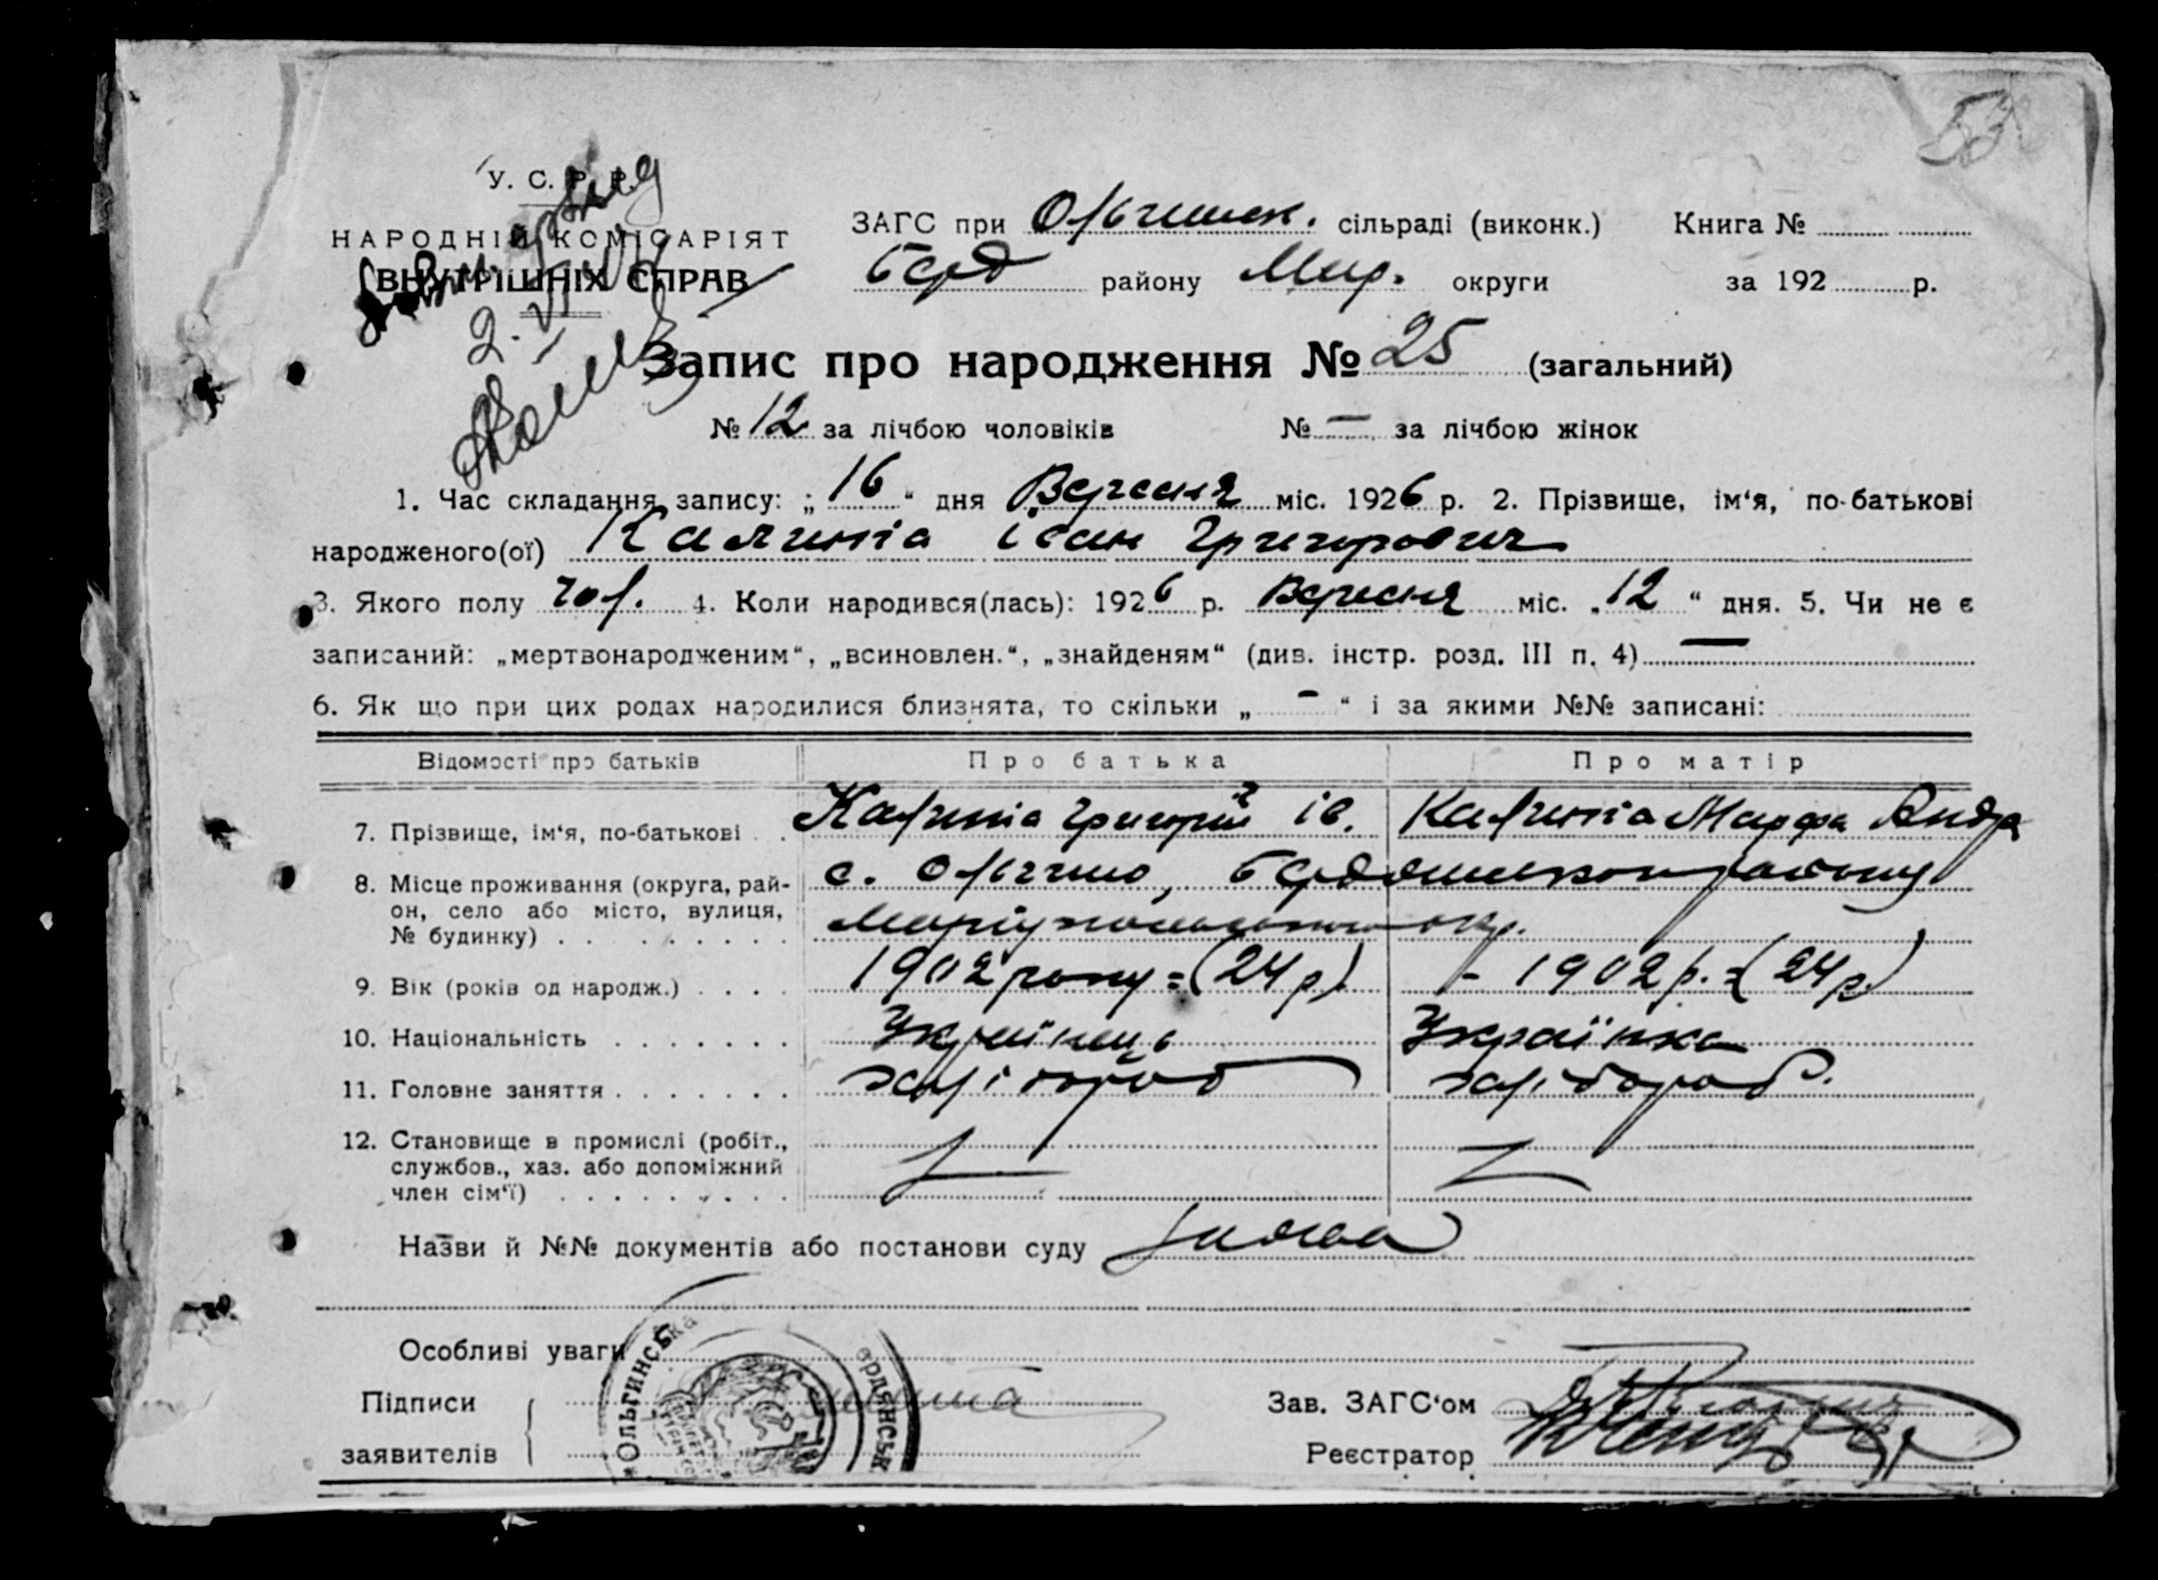 53
У. С. Р. Р.
НАРОДНІЙ КОМІСАРІЯТ
ВНУТРІШНІХ СПРАВ
ЗАГС при Ольгинськ. сільраді (виконк.) Книга №
Берд району Мар. округи за 192 р.
Запис про народження № 25 (загальний)
№ 12 за лічбою чоловіків № — за лічбою жінок
1. Час складання запису: „16“ дня Вересня міс. 1926 р. 2. Прізвище, ім‘я, по-батькові
народженого(ої) Калиніа Іван Григорович
3. Якого полу чол. 4. Коли народився(лась): 1926 р. Вересня міс. „12“ дня. 5. Чи не є
записаний: „мертвонародженим“, „всиновлен.“, „знайденям“ (див. інстр. розд. III п. 4) —
6. Як що при цих родах народилися близнята, то скільки „ - “ і за якими №№ записані:
Відомості про батьків Про батька Про матір
7. Прізвище, ім‘я, по-батькові Калиніа Григорій Ів. Калиніа Марфа Андр
8. Місце проживання (округа, рай- с. Ольгино, Бердянського району
он, село або місто, вулиця, Маріупольського окр.
№ будинку)
9. Вік (років од народж.) 1902 року = (24 р) - 1902 р. = (24 р.)
10. Національність Українець Українка
11. Головне заняття хлібороб хлібороб.
12. Становище в промислі (робіт.,
службов., хаз. або допоміжний
член сім‘ї)
Назви й №№ документів або постанови суду
Особливі уваги
Підписи Зав. ЗАГС‘ом
заявителів Реєстратор
Ольгинська